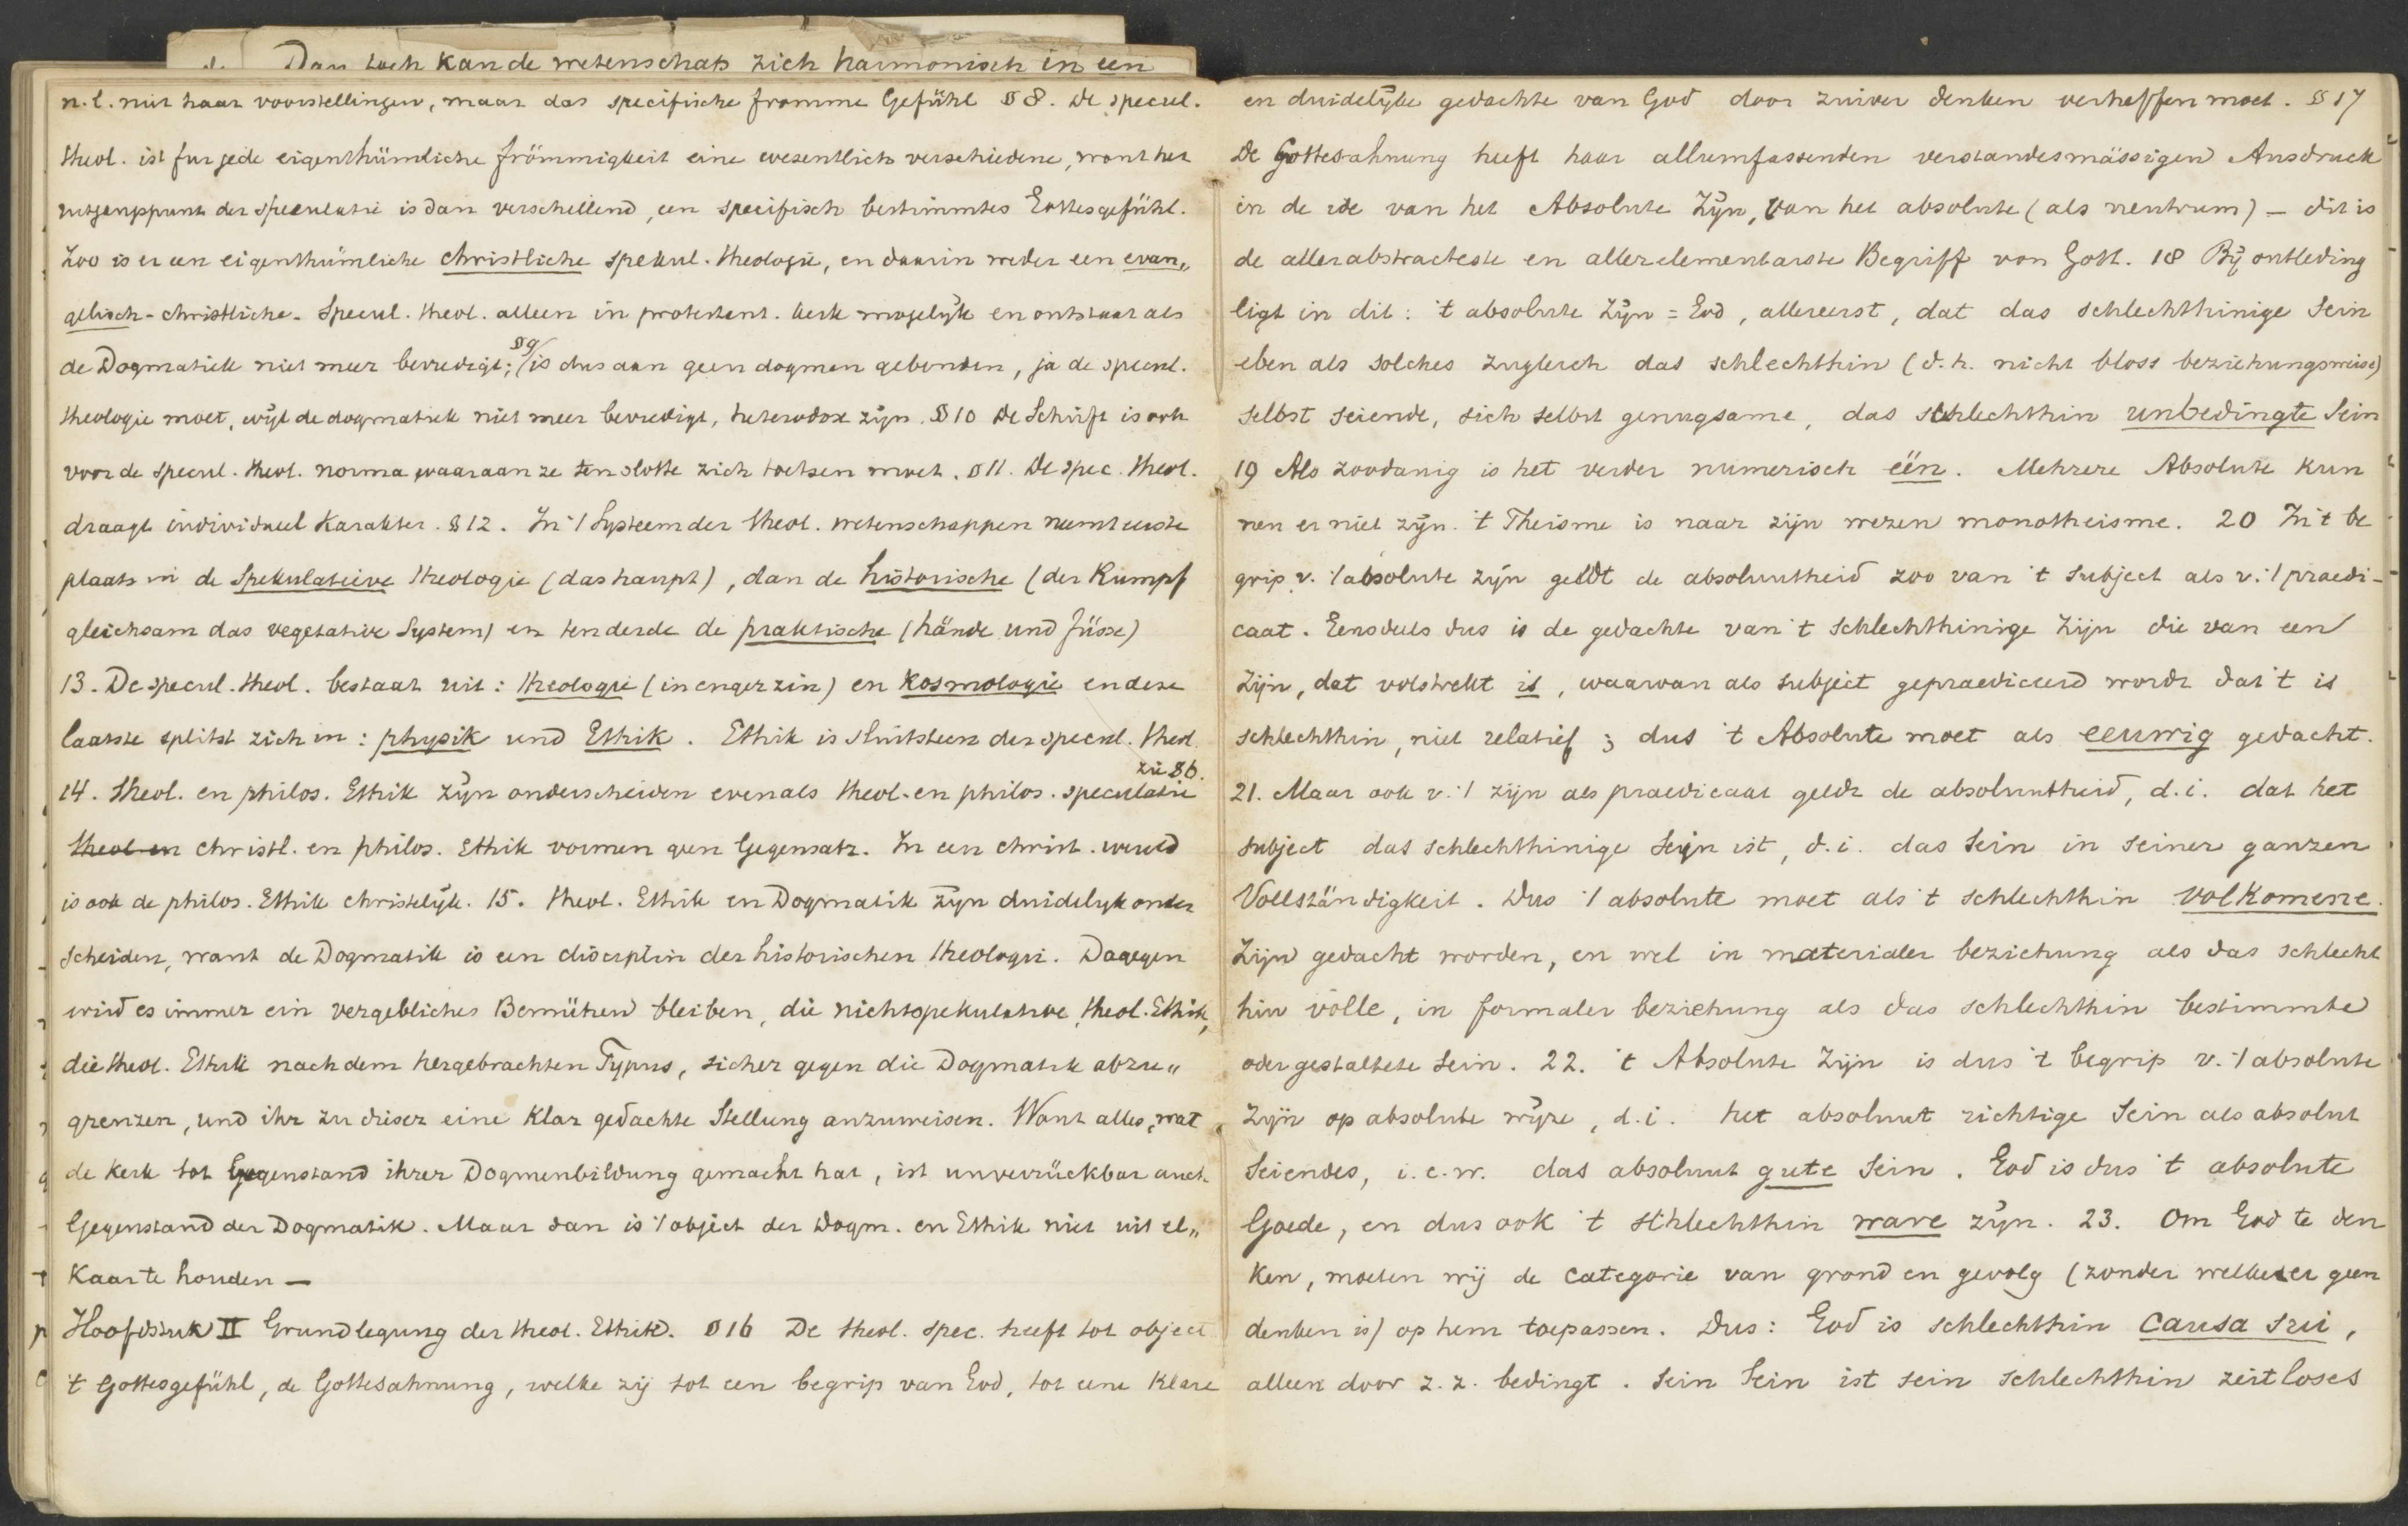 Dan toch kan de wetenschap zich harmonisch in een
n.l. niet haar voorstellingen, maar das specifische fromme Gefühl § 8. De specul.
theol. ist fur jede eigenthümliche frömmigkeit eine wesentlich verschiedene, want het
uitgangspunt der speculatie is dan verschillend, een specifisch bestimmtes Gottesgefühl.
Zoo is er een eigenthümliche christliche spekul. theologie, en daarin weder een evan„
gelisch-christliche. Specul. theol. alleen in protestant. kerk mogelijk en ontstaat als
de Dogmatiek niet meer bevredigt; §9/ is dus aan geen dogmen gebonden, ja de specul.
theologie moet, wijl de dogmatiek niet meer bevredigt, heterodox zijn. § 10 De Schrift is ook
voor de specul. theol. norma waaraan ze ten slotte zich toetsen moet. § 11. De spec. theol.
draagt individueel karakter. § 12. In 't Systeem der theol. wetenschappen neemt eerste
plaats in de Spekulatieve theologie (das haupt), dan de historische (der Rumpf
gleichsam das vegetative System) en ten derde de praktische (hände und füsse)
13. De specul. theol. bestaat uit: theologie (in enger zin) en kosmologie en deze
laatste splitst zich in: physik und Ethik. Ethik is sluitsteen der specul. theol.
14. theol. en philos. Ethik zijn onderscheiden evenals theol. en philos. speculatie zie § 6.
theol en christl. en philos. Ethik vormen geen Gegensatz. In een christ. wereld
is ook de philos. Ethik christelijk. 15. theol. Ethik en Dogmatik zijn duidelijk onder
scheiden, want de Dogmatik is een disciplin der historischen theologie. Dagegen
wird es immer ein vergebliches Bemühen bleiben, die nichtspekulative theol. Ethik,
die theol. Ethik nach dem hergebrachten Typus, sicher gegen die Dogmatik abzu„
grenzen, und ihr zu dieser eine klar gedachte Stellung anzuweisen. Want alles, wat
de kerk tot Gegenstand ihrer Dogmenbildung gemacht hat, ist unverrückbar auch
Gegenstand der Dogmatik. Maar dan is 't object der Dogm. en Ethik niet uit el„
kaar te houden —
Hoofdstuk II Grundlegung der theol. Ethik. § 16 De theol. spec. heeft tot object
't Gottesgefühl, de Gottesahnung, welke zij tot een begrip van God, tot eene klare
en duidelijke gedachte van God door zuiver denken verheffen moet. § 17
De Gottesahnung heeft haar allumfassenden verstandesmässigen Ausdruck
in de idee van het Absolute Zijn, van het absolute (als neutrum) — dit is
de allerabstracteste en allerelementarste Begriff von Gott. 18 Bij ontleding
ligt in dit: 't absolute Zijn = God, allereerst, dat das schlechthinige Sein
eben als solches zugleich das schlechthin (d.h. nicht bloss beziehungsweise)
selbst seiende, sich selbst genugsame, das schlechthin unbedingte Sein
19 Als zoodanig is het verder numerisch één. Mehrere Absolute kun
nen er niet zijn. 't Theisme is naar zijn wezen monotheisme. 20 In 't be
grip v. 't absolute zijn geldt de absoluutheid zoo van 't subject als v. 't praedi-
caat. Eensdeels dus is de gedachte van 't schlechthinige Zijn die van een
Zijn, dat volstrekt is, waarvan als subject gepraediceerd wordt dat 't is
schlechthin, niet relatief; dus 't Absolute moet als eeuwig gedacht.
21. Maar ook v. 't zijn als praedicaat geldt de absoluutheid, d.i. dat het
subject das schlechthinige Sein ist, d.i. das Sein in seiner ganzen
Vollständigkeit. Dus 't absolute moet als 't schlechthin volkomene.
Zijn gedacht worden, en wel in materialer beziehung als das schlecht
hin volle, in formaler beziehung als das schlechthin bestimmte
oder gestaltete Sein. 22. 't Absolute Zijn is dus 't begrip v. 't absolute
Zijn op absolute wijze, d.i. het absoluut richtige Sein als absolut
Seiendes, i.e.w. das absoluut gute Sein. God is dus 't absolute
Goede, en dus ook 't schlechthin ware zijn. 23. Om God te den
ken, moeten wij de categorie van grond en gevolg (zonder welke er geen
denken is) op hem toepassen. Dus: God is schlechthin causa sui,
alleen door z.z. bedingt. Sein Sein ist sein schlechthin zeitloses